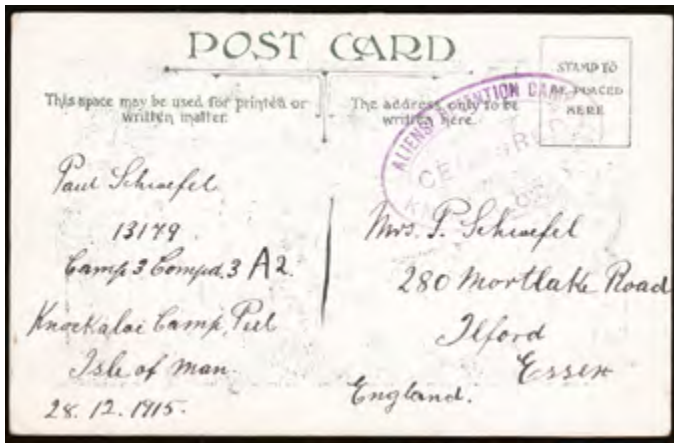 POST CARD
This space may be used for printed or
written matter.
The address only to be
written here.
STAMP TO
BE PLACED
HERE
ALIENS DETENTION CAMP
CENSORED
Paul Schiefel
13179.
Camp 3 Compd. 3 A2.
Knockaloe Camp, Peel
Isle of Man.
28.12.1915.
Mrs. P. Schiefel
280 Mortlake Road
Ilford
Essex
England.